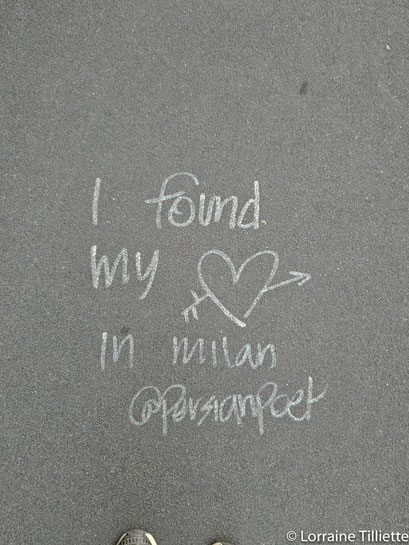 I found
my
in milan
@PersianPoet
© Lorraine Tilliette